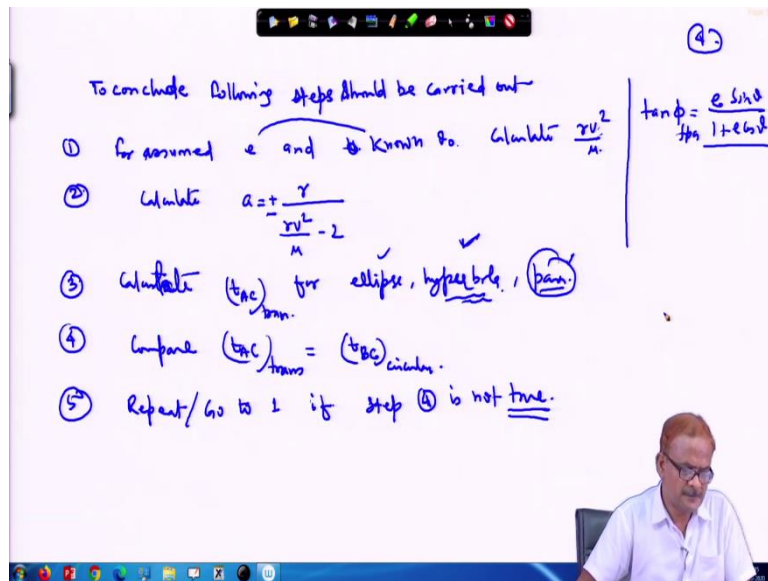 ④.
To conclude following steps should be carried out
① for assumed e and known v₀. Calculate rv²/μ.
② Calculate a = ± r / (rv²/μ - 2)
③ Calculate (t_AC)_tran. for ellipse, hyperbola, para.
④ Compare (t_AC)_trans = (t_BC)_circular.
⑤ Repeat/Go to 1 if step ④ is not true.
tanϕ = e sinθ / 1+e cosθ
fpa